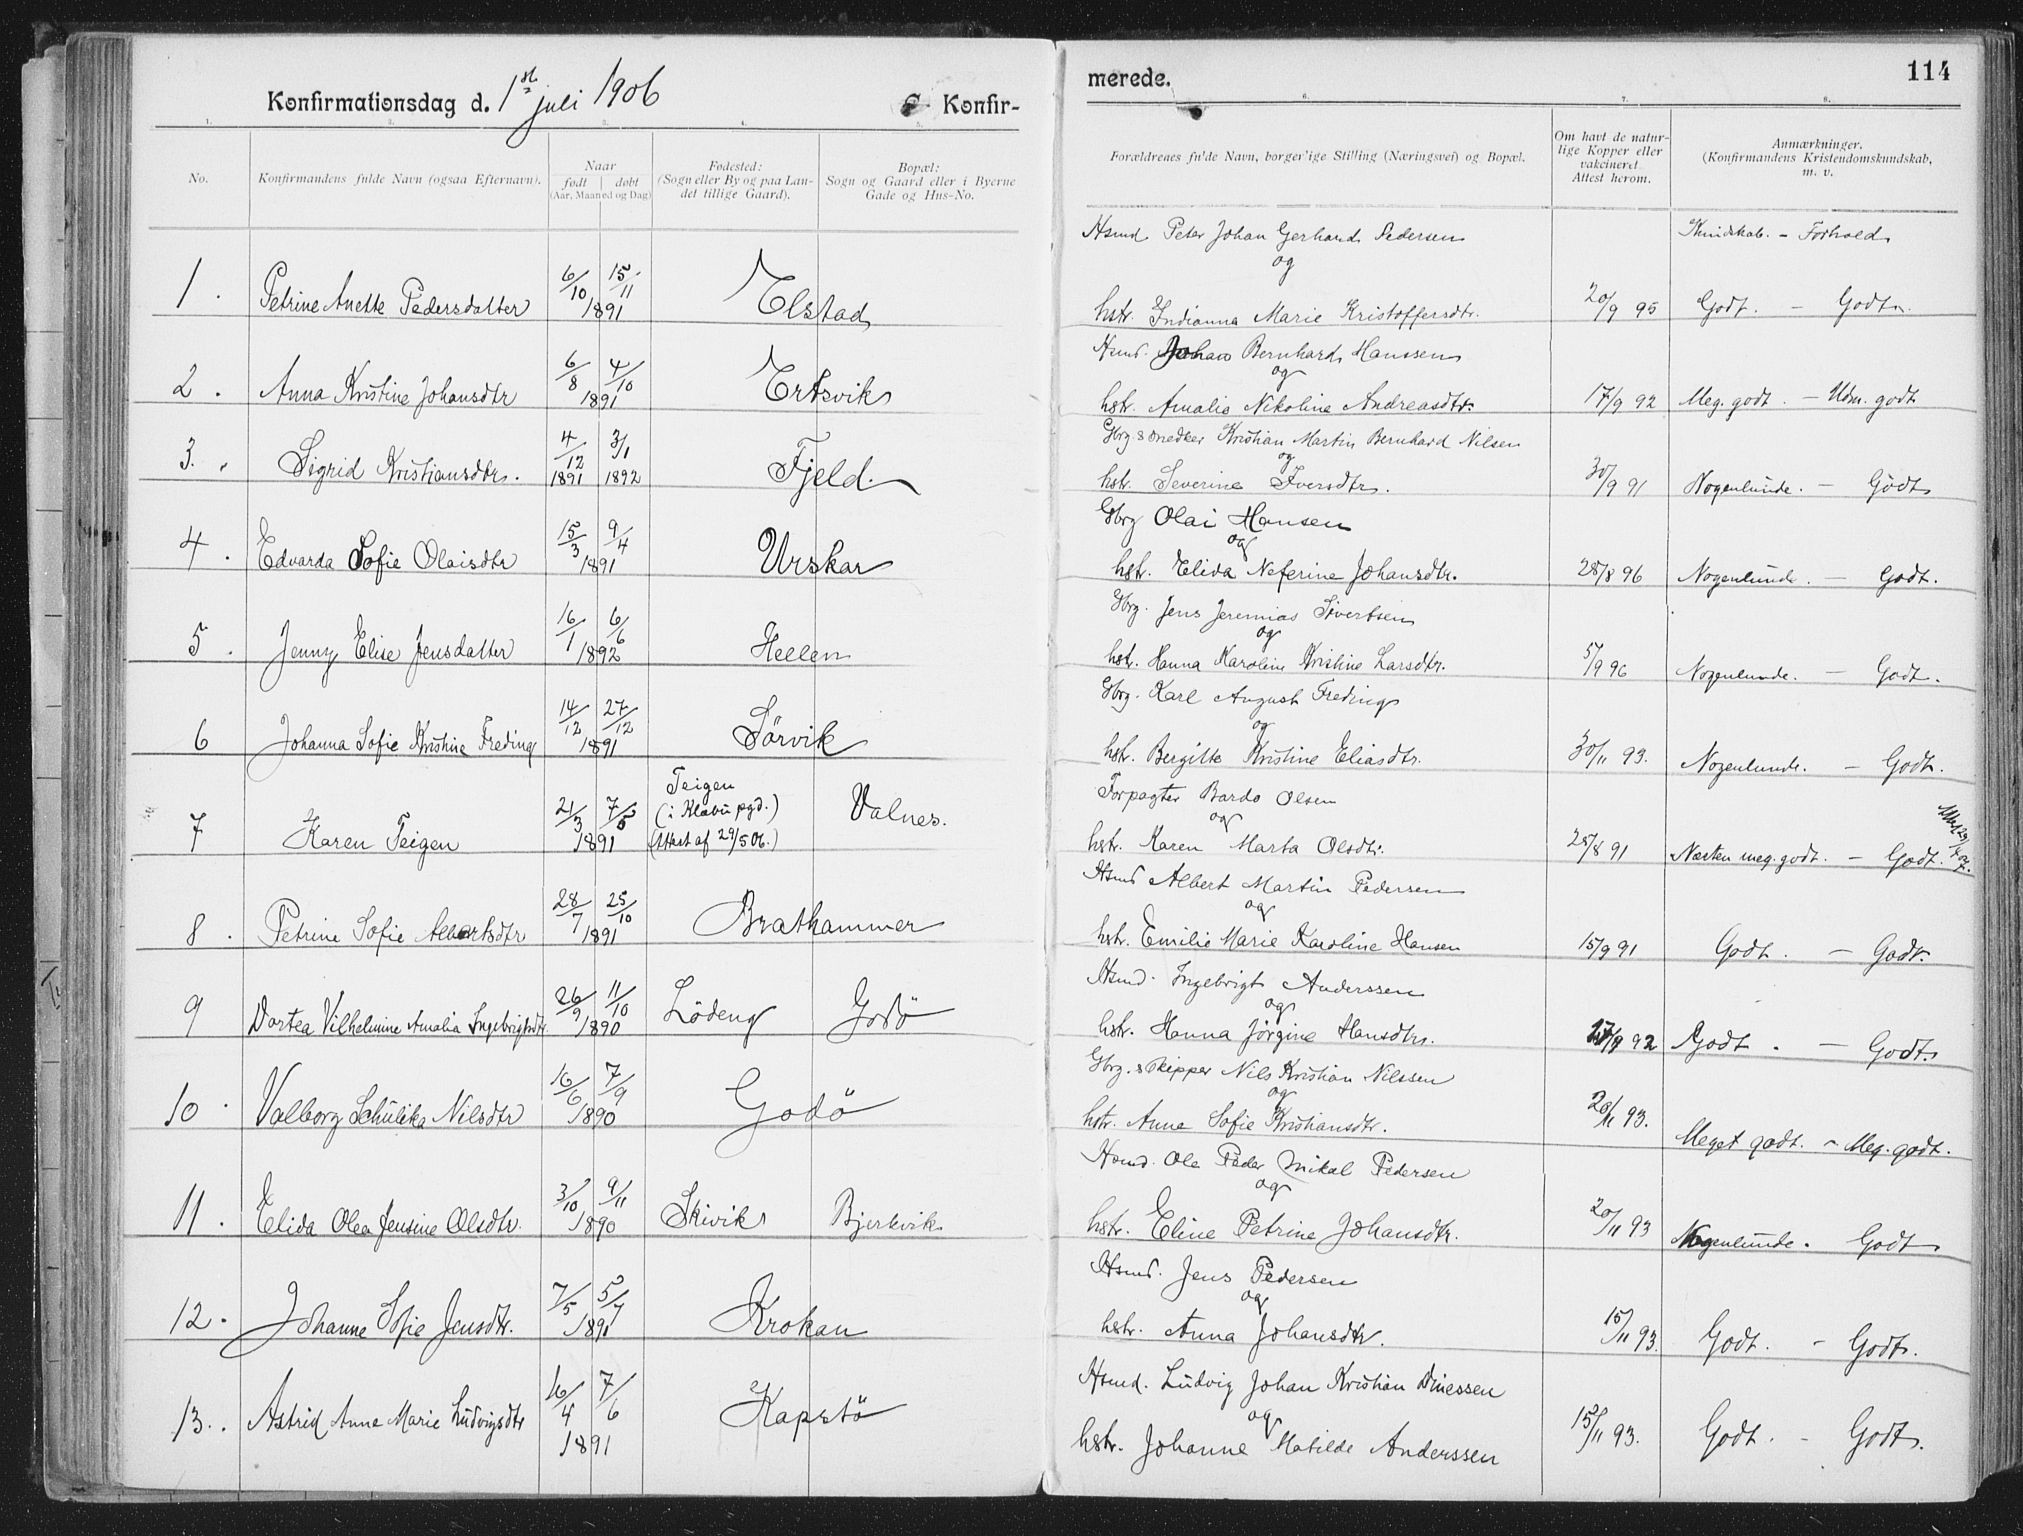 Konfirmationsdag d. 1st juli 1906 Konfir-
merede. 114
1. 2. 3. 4. 5.
No. Konfirmandens fulde Navn (ogsaa Efternavn). Naar født døbt (Aar, Maaned og Dag) Fødested: (Sogn eller By og paa Landet tillige Gaard). Bopæl: Sogn og Gaard eller i Byerne Gade og Hus-No.
6. 7. 8.
Forældrenes fulde Navn, borgerlige Stilling (Næringsvei) og Bopæl. Om havt de naturlige Kopper eller vakcineret. Attest herom. Anmærkninger. (Konfirmandens Kristendomskundskab, m. v.
Kundskab. - Forhold
1. Petrine Anette Pedersdatter 6/10 15/11 1891 Elstad
Hsmd Peter Johan Gerhard Pedersen
og
hstr. Indianna Marie Kristoffersdtr. 20/9 95 Godt. - Godt.
2. Anna Kristine Johansdtr 6/8 4/10 1891 Ertsvik
Hsmd. Johan Bernhard Hanssen
og
hstr. Amalie Nikoline Andreasdtr. 17/9 92 Meg. godt. - Udm. godt
3. Sigrid Kristiansdtr. 4/12 1891 3/1 1892 Fjeld.
Gbrg. snedker Kristian Martin Bernhard Nilsen
og
hstr. Severine Iversdtr. 30/9 91 Nogenlunde. - Godt
4. Edvarda Sofie Olaisdtr 15/3 9/4 1891 Urskar
Gbrg Olai Hansen
og
hstr. Elida Neferine Johansdtr. 28/8 96 Nogenlunde. - Godt.
5. Jenny Elise Jensdatter 16/1 6/6 1892 Hellen
Gbrg. Jens Jeremias Sivertsen
og
hstr. Hanna Karoline Kristine Larsdtr. 5/9 96 Nogenlunde. - Godt.
6 Johanna Sofie Kristine Freding 14/12 27/12 1891 Sörvik
Gbrg. Karl August Freding
og
hstr. Bergitte Kristine Eliasdtr. 30/11 93. Nogenlunde. - Godt.
7 Karen Teigen 21/3 7/5 1891 Teigen (i Klæbu pgd.) (Attest af 29/5 06.) Valnes.
Forpagter Bardo Olsen
og
hstr. Karen Marta Olsdtr. 28/8 91 Næsten meg. godt. - Godt.
8. Petrine Sofie Albertsdtr 28/7 25/10 1891 Brathammer
Hsmd Albert Martin Pedersen
og
hstr. Emilie Marie Karoline Hansen 15/9 91 Godt. - Godt.
9 Dortea Vilhelmine Amalia Ingebrigtsdtr. 26/9 11/10 1890 Lödeng Godö
Hsmd. Ingebrigt Anderssen
og
hstr. Hanna Jörgine Hansdtr. 17/9 92 Godt. - Godt.
10. Valborg Schulika Nilsdtr 16/6 7/9 1890 Godö
Gbrg. skipper Nils Kristian Nilssen
og
hstr. Anne Sofie Kristiansdtr. 20/11 93. Meget godt. - Meg. godt.
11. Elida Olea Jensine Olsdtr. 3/10 9/11 1890 Skivik Bjerkvik
Hsmd. Ole Peder Mikal Pedersen
og
hstr. Eline Petrine Johansdtr. 20/11 93 Nogenlunde. Godt
12. Johanne Sofie Jensdtr. 7/5 5/7 1891 Krokan
Hsmd. Jens Pedersen
og
hstr. Anna Johansdtr. 15/11 93. Godt. - Godt.
13. Astrid Anne Marie Ludvigsdtr 16/4 7/6 1891 Kapstö
Hsmd. Ludvig Johan Kristian Dinessen
og
hstr. Johanne Matilde Anderssen 15/11 93. Godt. - Godt.